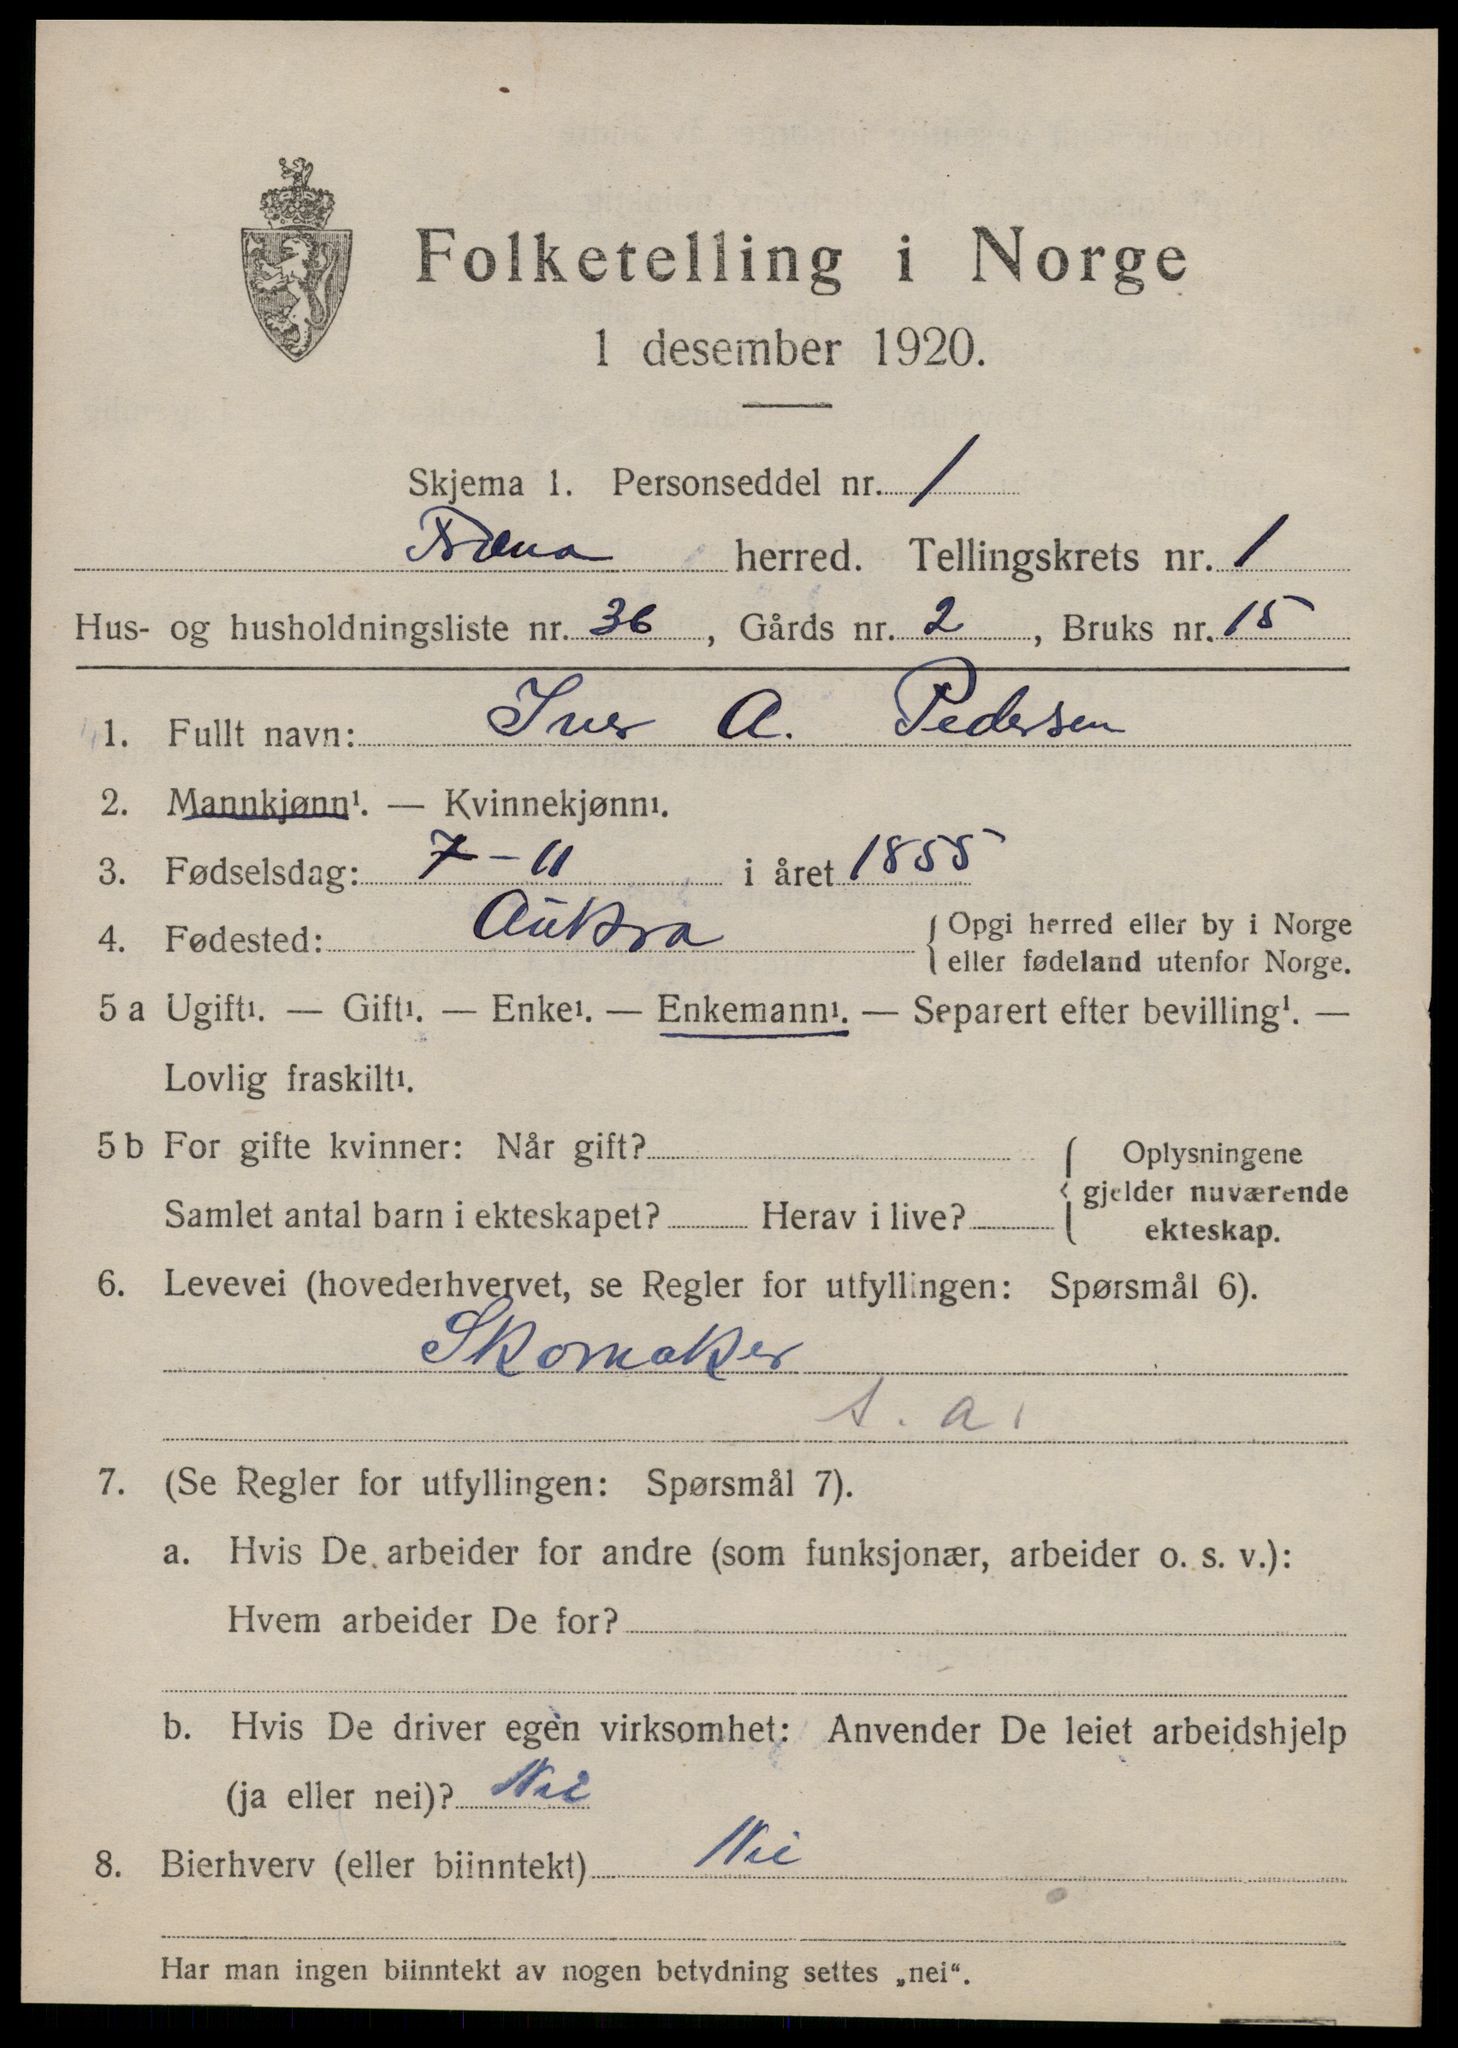 Folketelling i Norge
1 desember 1920.
Skjema 1. Personseddel nr. 1
Fræna herred. Tellingskrets nr. 1
Hus- og husholdningsliste nr. 36, Gårds nr. 2, Bruks nr. 15
1. Fullt navn: Iver A. Pedersen
2. Mannkjønn¹. — Kvinnekjønn¹.
3. Fødselsdag: 7-11 i året 1855
4. Fødested: Aukra { Opgi herred eller by i Norge
eller fødeland utenfor Norge.
5 a Ugift¹. — Gift¹. — Enke¹. — Enkemann¹. — Separert efter bevilling¹. —
Lovlig fraskilt¹.
5 b For gifte kvinner: Når gift?
Samlet antal barn i ekteskapet? Herav i live?
{ Oplysningene
gjelder nuværende
ekteskap.
6. Levevei (hovederhvervet, se Regler for utfyllingen: Spørsmål 6).
Skomaker
s. a.
7. (Se Regler for utfyllingen: Spørsmål 7).
a. Hvis De arbeider for andre (som funksjonær, arbeider o. s. v.):
Hvem arbeider De for?
b. Hvis De driver egen virksomhet: Anvender De leiet arbeidshjelp
(ja eller nei)? Nei
8. Bierhverv (eller biinntekt) Nei
Har man ingen biinntekt av nogen betydning settes „nei“.